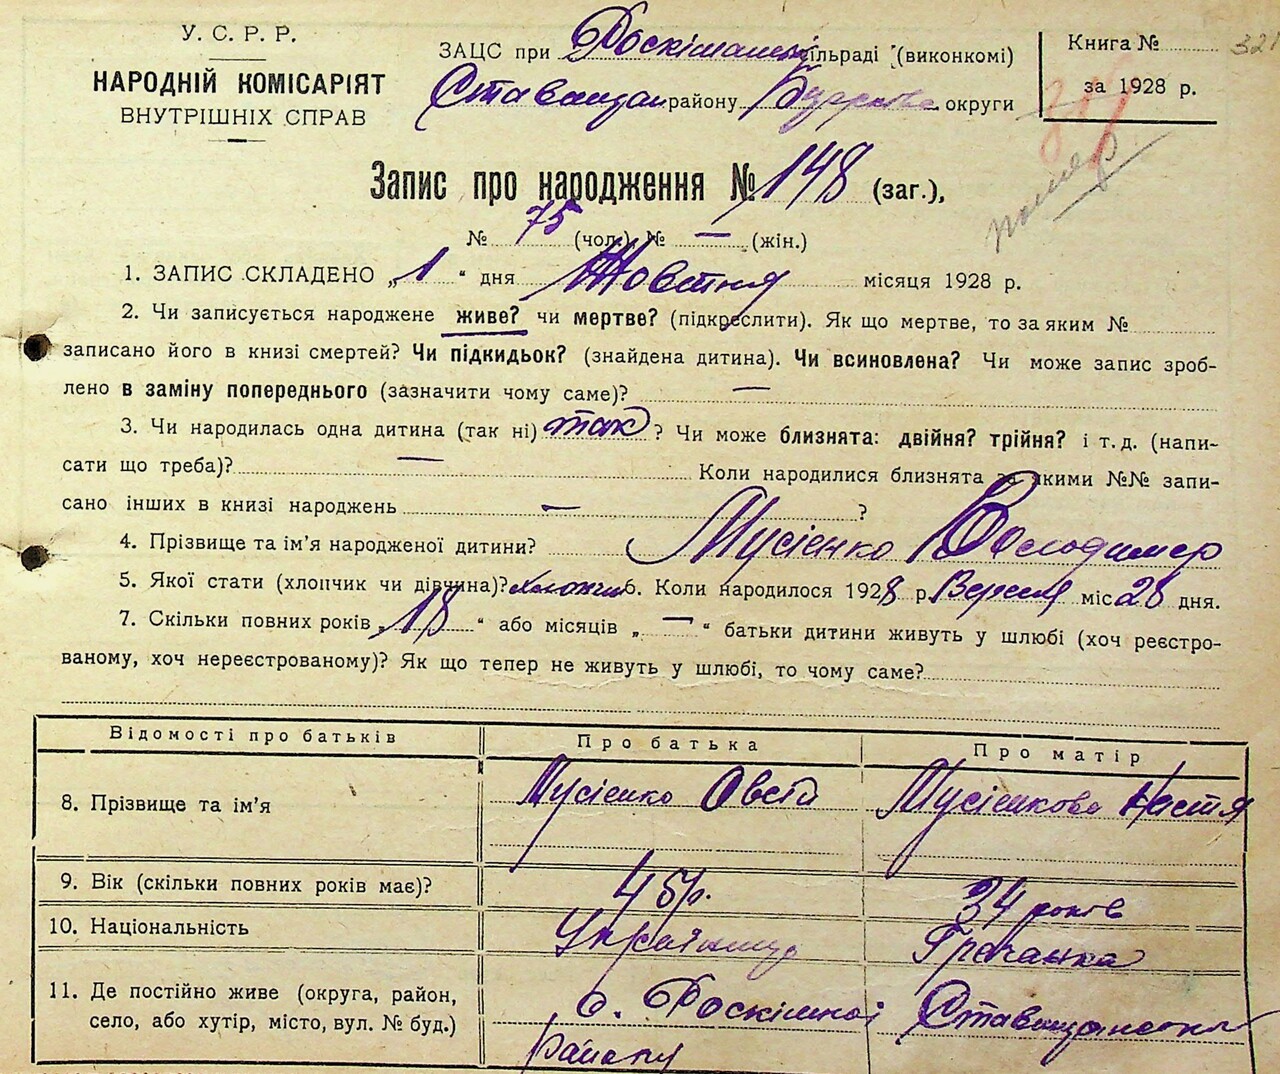 У. С. Р. Р.
НАРОДНІЙ КОМІСАРІЯТ
ВНУТРІШНІХ СПРАВ
ЗАЦС при Роскішанській сільраді (виконкомі)
Ставищан району округи
Книга № 321
за 1928 р.
Запис про народження № 148 (заг.),
№ 75 (чол.), № — (жін.)
1. ЗАПИС СКЛАДЕНО „1“ дня Жовтня місяця 1928 р.
2. Чи записується народжене живе? чи мертве? (підкреслити). Як що мертве, то за яким №
записано його в книзі смертей? Чи підкидьок? (знайдена дитина). Чи всиновлена? Чи може запис зроб-
лено в заміну попереднього (зазначити чому саме)? —
3. Чи народилась одна дитина (так ні) так ? Чи може близнята: двійня? трійня? і т. д. (напи-
сати що треба)? — Коли народилися близнята за якими №№ запи-
сано інших в книзі народжень — ?
4. Прізвище та ім’я народженої дитини? Мусієнко Володимер
5. Якої стати (хлопчик чи дівчина)? хлопчик 6. Коли народилося 1928 р. Вересня міс 28 дня.
7. Скільки повних років „18“ або місяців „—“ батьки дитини живуть у шлюбі (хоч реєстро-
ваному, хоч нереєстрованому)? Як що тепер не живуть у шлюбі, то чому саме?
Відомості про батьків Про батька Про матір
8. Прізвище та ім’я Мусієнко Овсій Мусієнкова Настя
9. Вік (скільки повних років має)? 45 р. 34 років
10. Національність Українець Гречанка
11. Де постійно живе (округа, район,
село, або хутір, місто, вул. № буд.)
с. Роскішної Ставищанського
району